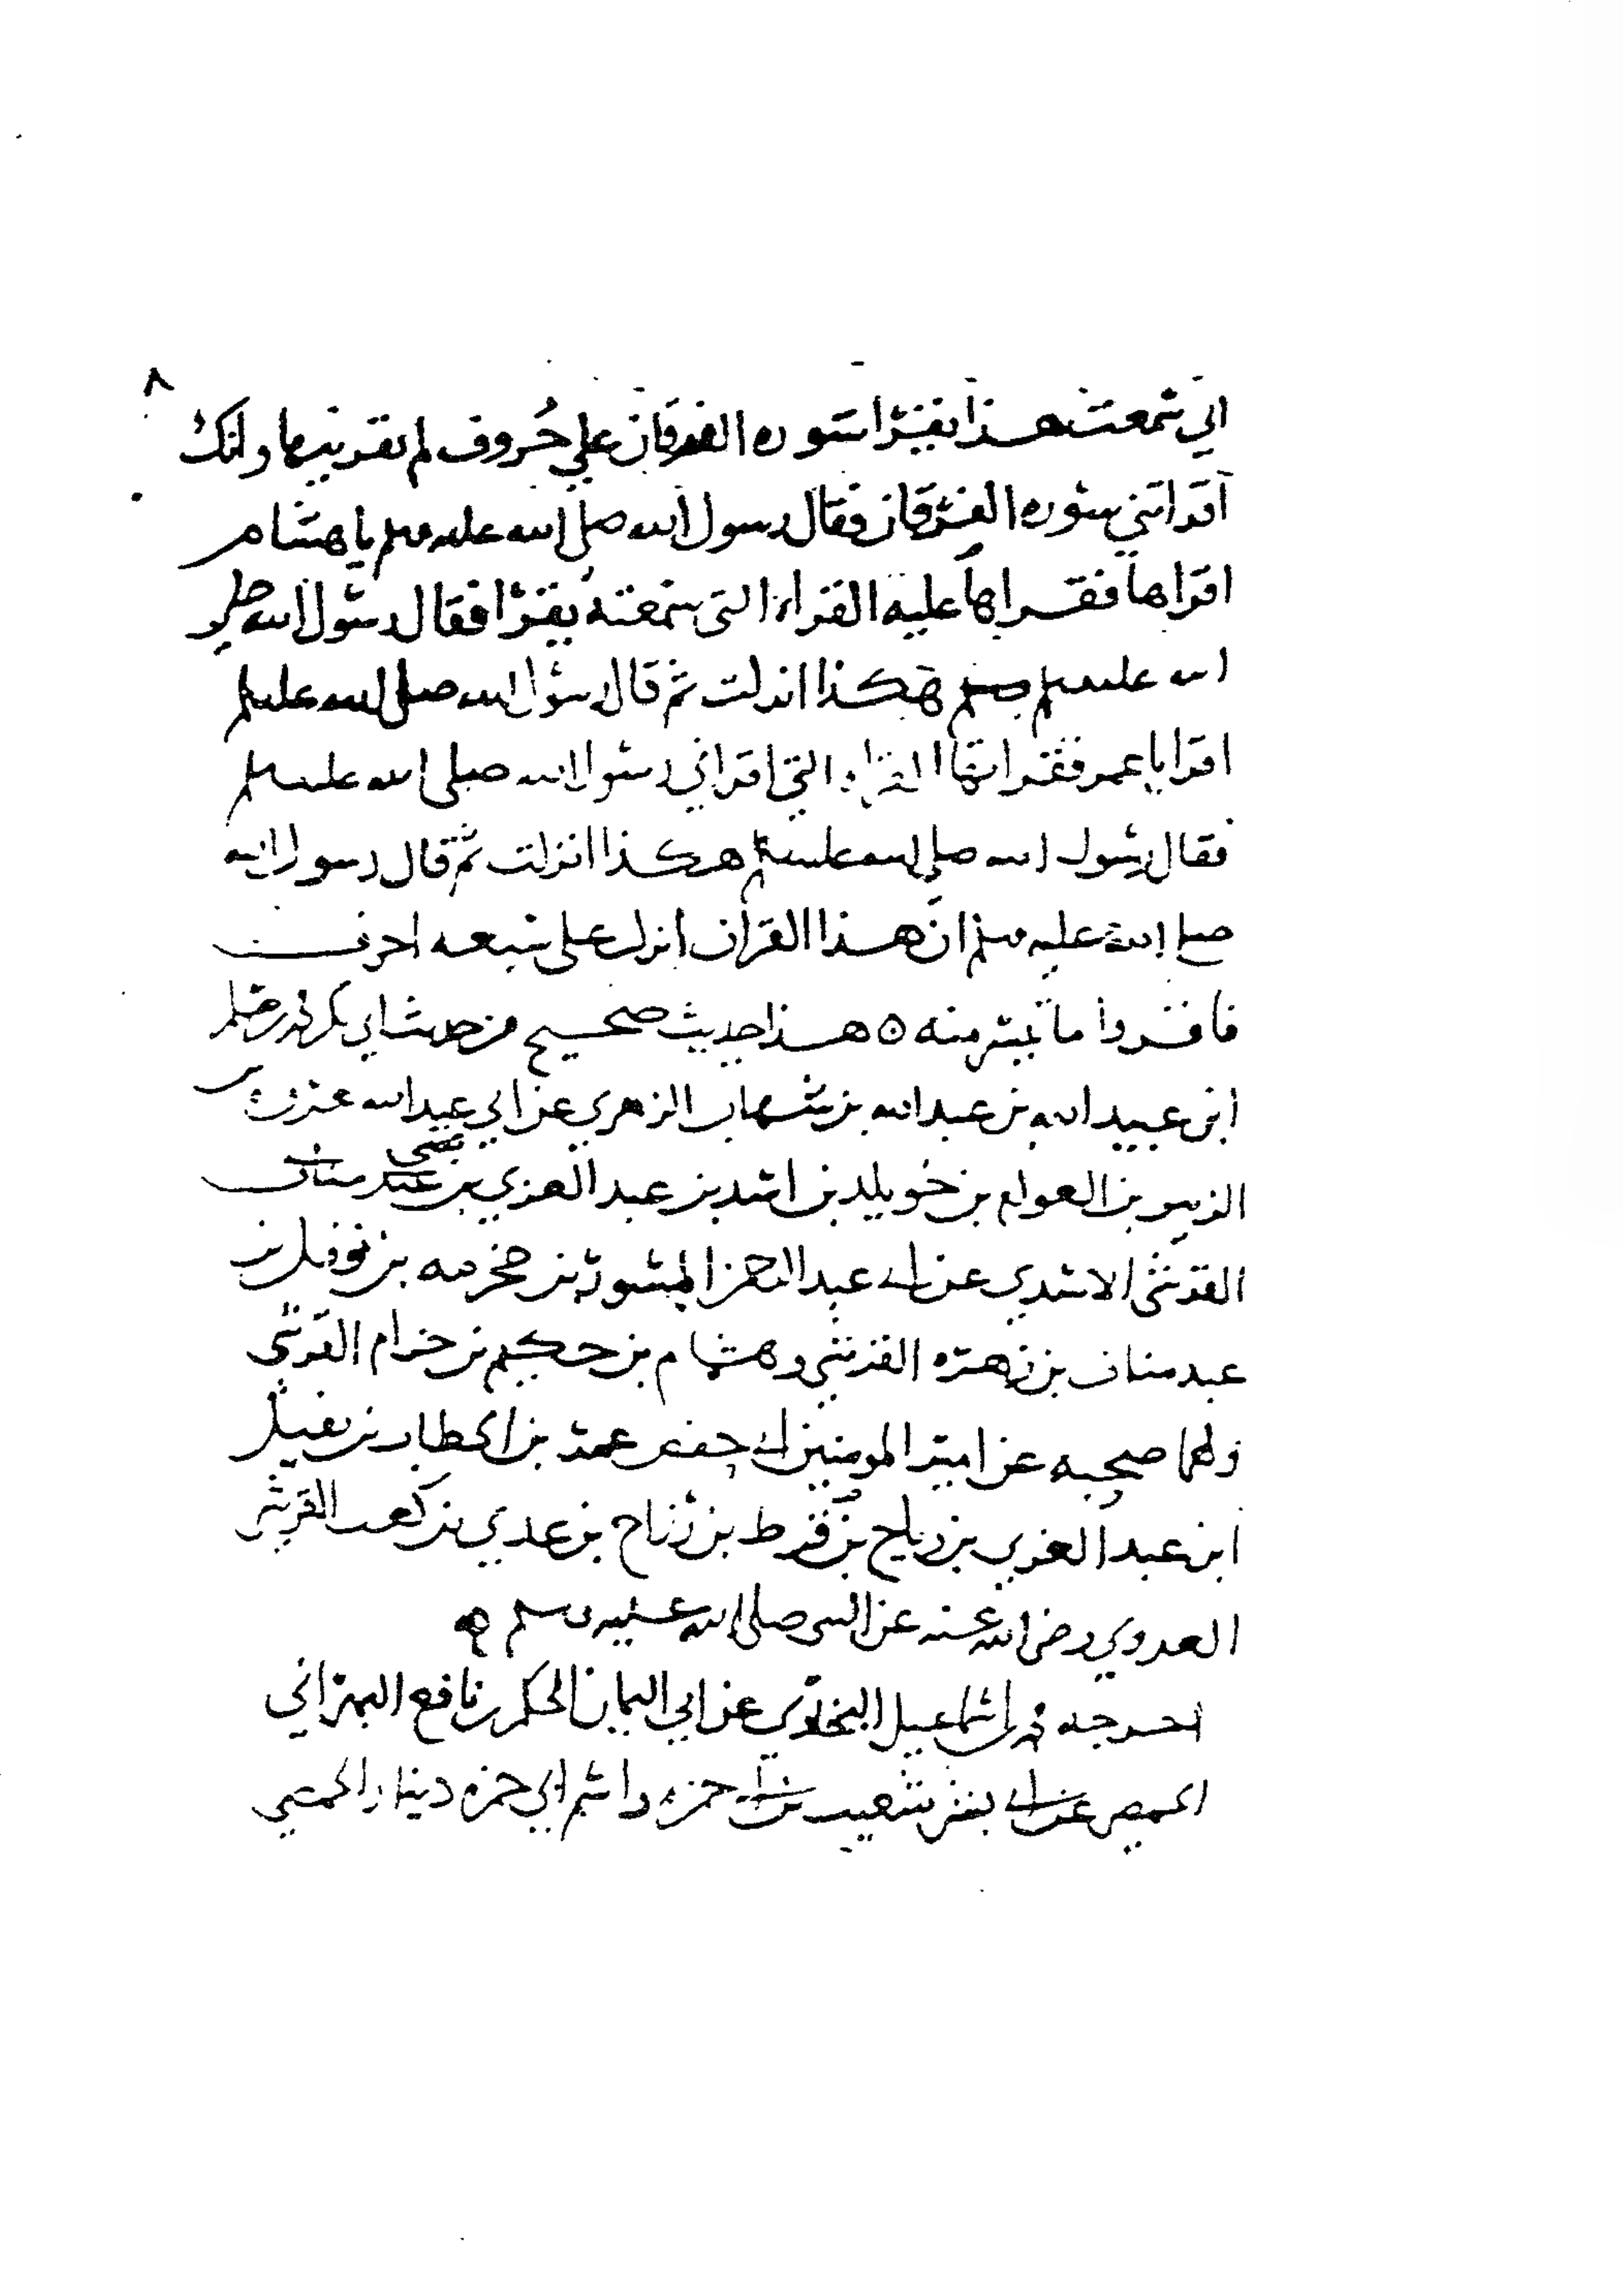 ٨
اني سمعت هذا يقرا سوره الفرقان على حُروف لم تقرينيها وانك
اقراتني سوره الفرقان فقال رسول الله صلى الله عليه وسلم يا هشام
اقراها فقراها عليه القراءة التي سمعته يقرا فقال رسول الله صلى
الله عليه وسلم هكذا انزلت ثم قال رسول الله صلى الله عليه وسلم
اقرا يا عمر فقراتها القراءة التي اقراني رسول الله صلى الله عليه وسلم
فقال رسول الله صلى الله عليه وسلم هكذا انزلت ثم قال رسول الله
صلى الله عليه وسلم ان هذا القران انزل على سبعه احرف
فاقروا ما تيسر منه ه هذا حديث صحيح من حديث ابي بكر محمد بن مسلم
ابن عبيد الله بن عبد الله بن شهاب الزهري عن ابي عبد الله عروة بن
الزبير بن العوام بن خويلد بن اسد بن عبد العزي بن قصي عبد مناف
القرشي الاسدي عن ابي عبد الرحمن المسور بن مخرمه بن نوفل بن
عبد مناف بن زهره القرشي وهشام بن حكيم بن حزام القرشي
ولهما صحبه عن امير المومنين ابي حفص عمر بن الخطاب بن نفيل
ابن عبد العزي بن رياح بن قرط بن رزاح بن عدي بن كعب القرشي
العدوي رضي الله عنه عن النبي صلى الله عليه وسلم ه
اخرجه محمد بن اسماعيل البخاري عن ابي اليمان الحكم بن نافع البهراني
الحمصي عن ابي بشر شعيب بن ابي حمزه واسم ابي حمزه دينار الحمصي